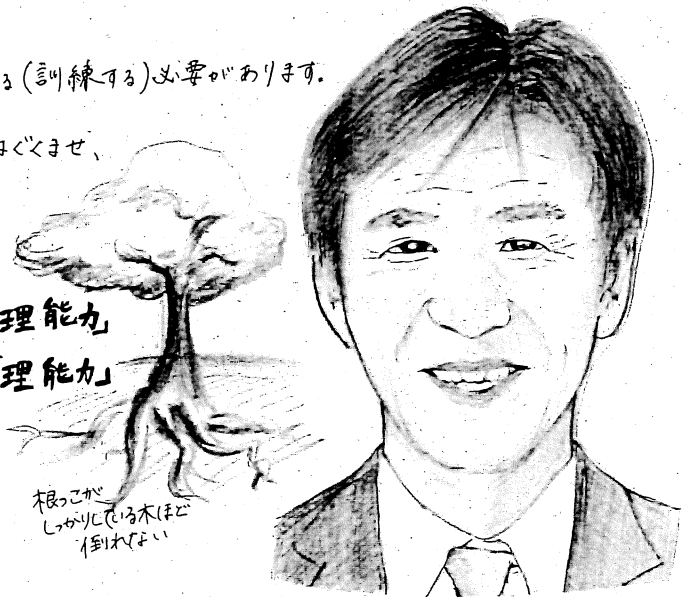 る(訓練する)必要があります。
はぐくませ、
理能力」
理能力」
根っこが
しっかりしている木ほど
倒れない